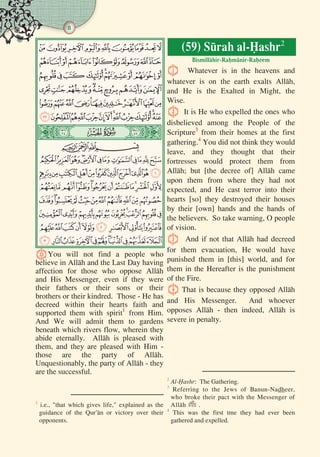 8
لَّا تَجِدُ قَوْمًا يُؤْمِنُونَ بِاللَّهِ وَالْيَوْمِ الْآخِرِ يُوَادُّونَ مَنْ
حَادَّ اللَّهَ وَرَسُولَهُ وَلَوْ كَانُوا آبَاءَهُمْ أَوْ أَبْنَاءَهُمْ
أَوْ إِخْوَانَهُمْ أَوْ عَشِيرَتَهُمْ أُولَٰئِكَ كَتَبَ فِي قُلُوبِهِمُ
الْإِيمَانَ وَأَيَّدَهُم بِرُوحٍ مِّنْهُ وَيُدْخِلُهُمْ جَنَّاتٍ تَجْرِي
مِن تَحْتِهَا الْأَنْهَارُ خَالِدِينَ فِيهَا رَضِيَ اللَّهُ عَنْهُمْ وَرَضُوا
عَنْهُ أُولَٰئِكَ حِزْبُ اللَّهِ أَلَا إِنَّ حِزْبَ اللَّهِ هُمُ الْمُفْلِحُونَ
سُورَةُ الْحَشْرِ
بِسْمِ اللَّهِ الرَّحْمَٰنِ الرَّحِيمِ
سَبَّحَ لِلَّهِ مَا فِي السَّمَاوَاتِ وَمَا فِي الْأَرْضِ وَهُوَ الْعَزِيزُ الْحَكِيمُ
You will not find a people who
believe in Allāh and the Last Day having
affection for those who oppose Allāh
and His Messenger, even if they were
their fathers or their sons or their
brothers or their kindred. Those - He has
decreed within their hearts faith and
supported them with spirit¹ from Him.
And We will admit them to gardens
beneath which rivers flow, wherein they
abide eternally. Allāh is pleased with
them, and they are pleased with Him -
those are the party of Allāh.
Unquestionably, the party of Allāh - they
are the successful.
¹ i.e., "that which gives life," explained as the
guidance of the Qur'ān or victory over their
opponents.
(59) Sūrah al-Ḥashr²
Bismillāhir-Raḥmānir-Raḥeem
Whatever is in the heavens and
whatever is on the earth exalts Allāh,
and He is the Exalted in Might, the
Wise.
It is He who expelled the ones who
disbelieved among the People of the
Scripture³ from their homes at the first
gathering.⁴ You did not think they would
leave, and they thought that their
fortresses would protect them from
Allāh; but [the decree of] Allāh came
upon them from where they had not
expected, and He cast terror into their
hearts [so] they destroyed their houses
by their [own] hands and the hands of
the believers. So take warning, O people
of vision.
And if not that Allāh had decreed
for them evacuation, He would have
punished them in [this] world, and for
them in the Hereafter is the punishment
of the Fire.
That is because they opposed Allāh
and His Messenger. And whoever
opposes Allāh - then indeed, Allāh is
severe in penalty.
² Al-Ḥashr: The Gathering.
³ Referring to the Jews of Banun-Nadheer,
who broke their pact with the Messenger of
Allāh ﷺ.
⁴ This was the first tme they had ever been
gathered and expelled.